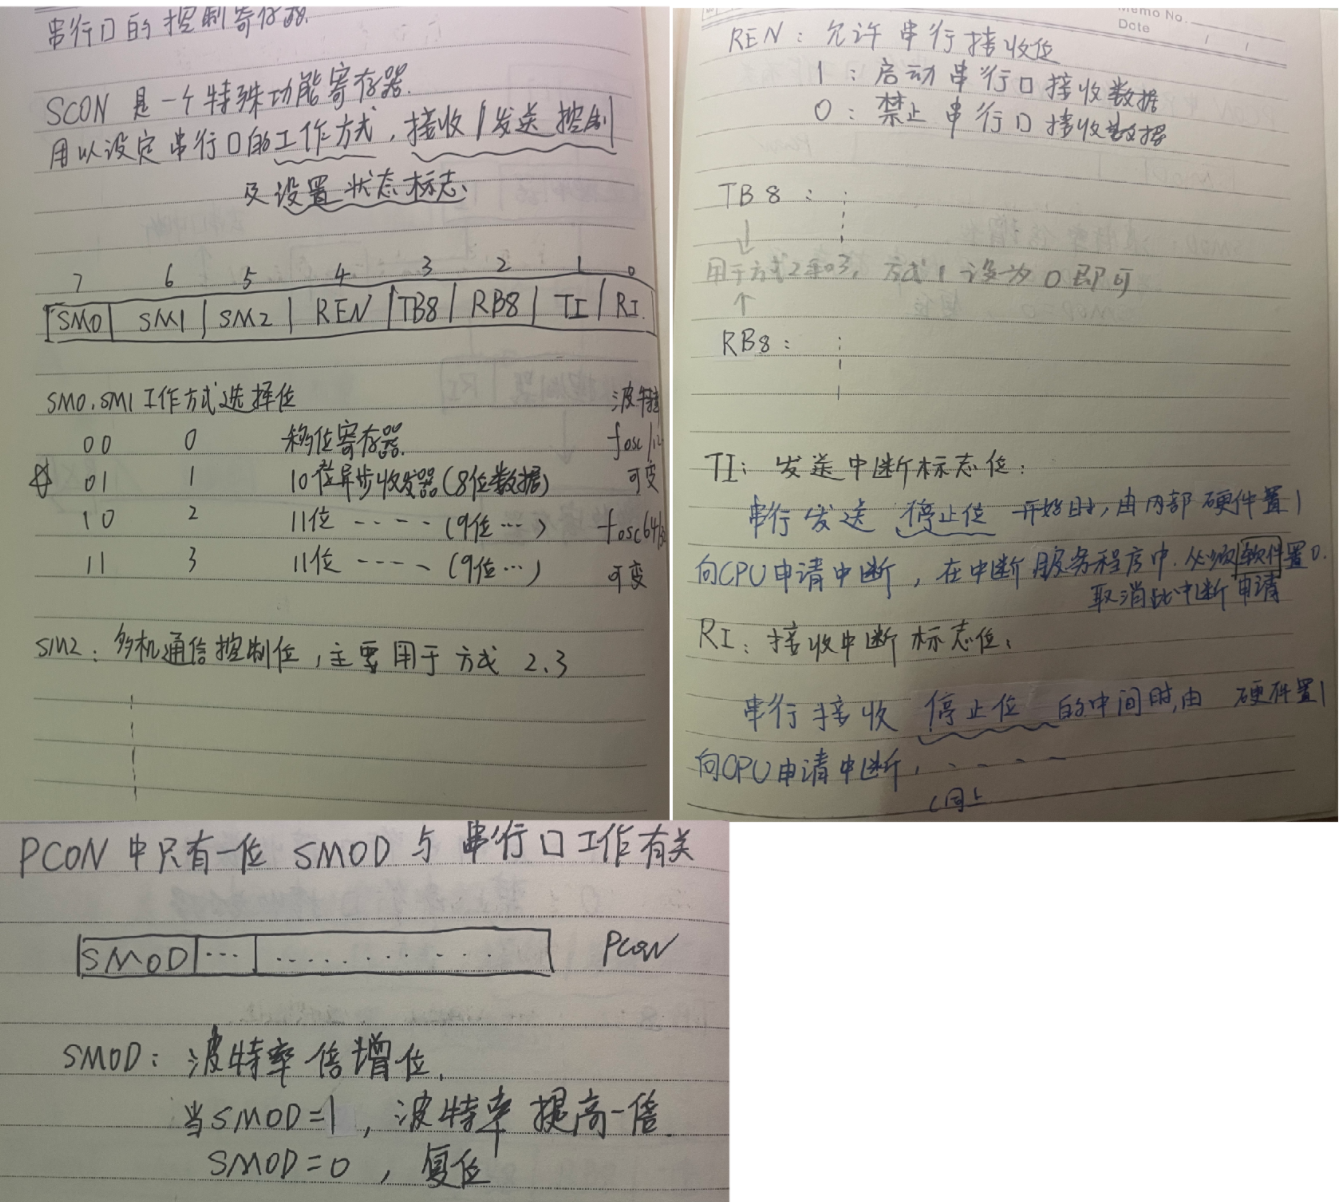 串行口的控制寄存器.
SCON 是一个特殊功能寄存器.
用以设定串行口的工作方式,接收/发送控制
及设置状态标志.
7 6 5 4 3 2 1 0
SM0 SM1 SM2 REN TB8 RB8 TI RI
SM0.SM1 工作方式选择位 波特率
00 0 移位寄存器. fosc/12
☆ 01 1 10位异步收发器(8位数据) 可变
10 2 11位 ---- (9位…) fosc64/
11 3 11位 ---- (9位…) 可变
SM2: 多机通信控制位,主要用于方式 2.3
Memo No.
Date / /
REN: 允许串行接收位
1: 启动串行口接收数据
0: 禁止串行口接收数据
TB8:
↓
用于方式2和3, 方式1设为0即可
↑
RB8:
TI: 发送中断标志位:
串行发送 停止位 开始时,由内部硬件置1
向CPU申请中断,在中断服务程序中.必须软件置0.
取消此中断申请
RI: 接收中断标志位:
串行接收 停止位 的中间时,由 硬件置1
向CPU申请中断, - - - -
(同上
PCON 中只有一位 SMOD 与串行口工作有关
SMOD … ………… PCON
SMOD: 波特率倍增位.
当SMOD=1, 波特率提高一倍.
SMOD=0, 复位